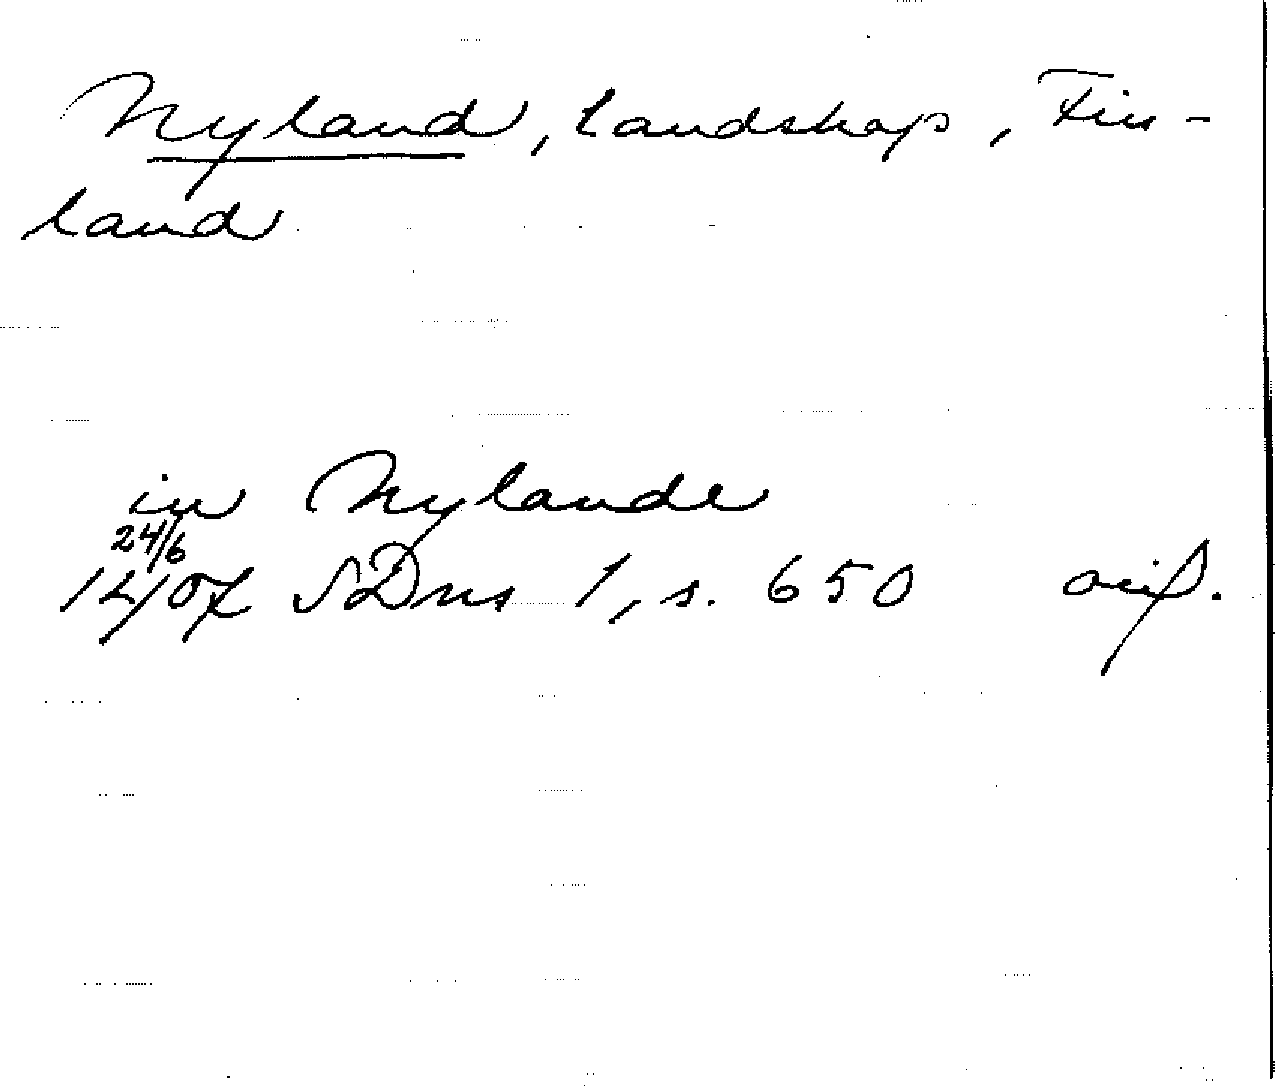 Nyland, landskap, Fin-
land
in Nylande
24/6
1407 SDns 1, s. 650 avs.